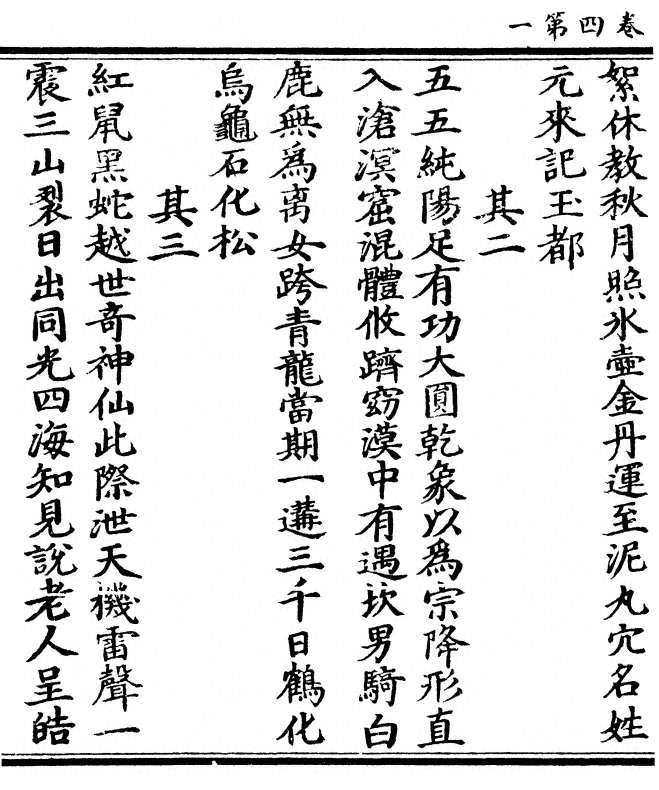 一第四卷
絮休教秋月照氷壺金丹運至泥丸穴名姓
元來記玉都
其二
五五純陽足有功大圓乾象以爲宗降形直
入滄溟窟混體攸躋窈漠中有遇坎男騎白
鹿無爲离女跨青龍當期一遘三千日鶴化
烏龜石化松
其三
紅䑕黑蛇越世奇神仙此際泄天機雷聲一
震三山裂日出同光四海知見說老人呈皓